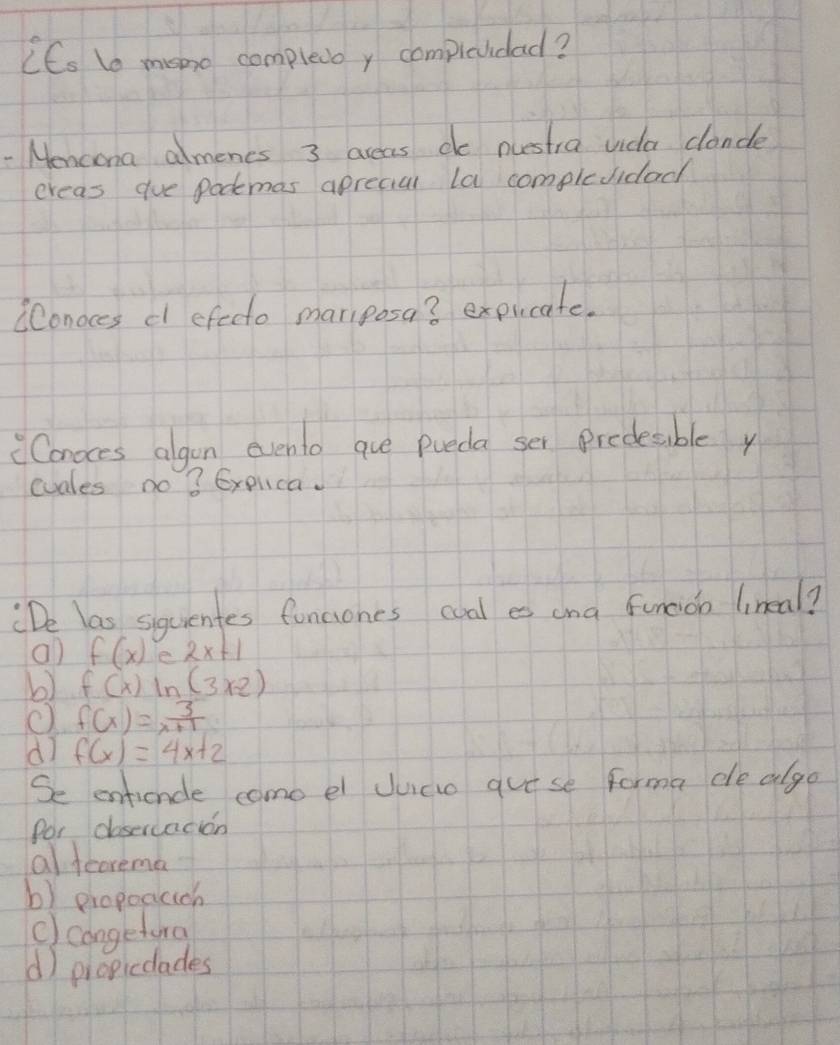 ¿Es lo mismo complejo y complejidad?
- Mencona almenos 3 areas de nuestra vida donde
creas que podemos apreciar la complejidad
¿Conoces el efecto mariposa? explicate.
¿Conoces algun evento que pueda ser predesible y
cuales no? Explica.
¿De las siguientes funciones cual es una función lineal?
a) f(x) = 2x+1
b) f(x) ln(3x2)
c) f(x) = 3/x+1
d) f(x) = 4x+2
Se entiende como el Juicio que se forma de algo
por obsercación
a) teorema
b) propoación
c) congetura
d) propiedades